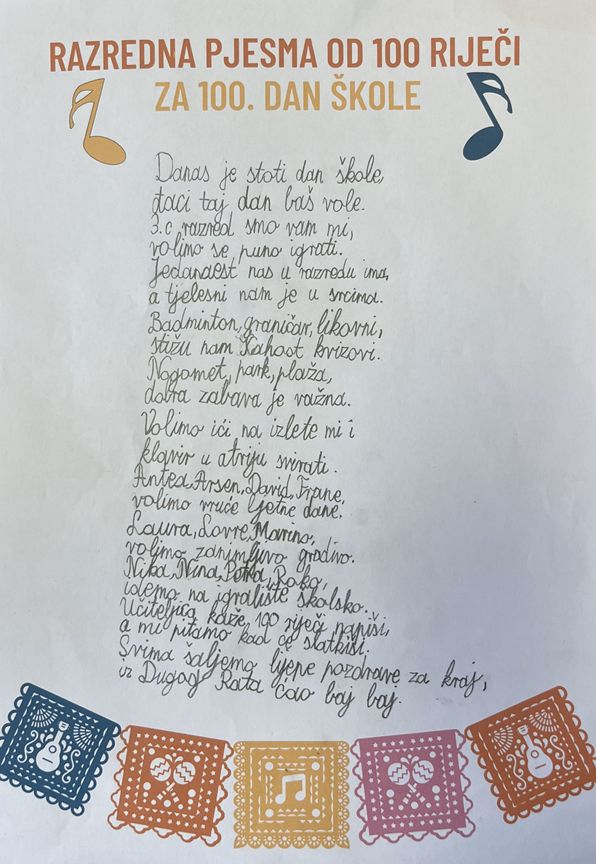 RAZREDNA PJESMA OD 100 RIJEČI
ZA 100. DAN ŠKOLE
Danas je stoti dan škole,
đaci taj dan baš vole.
3.c razred smo vam mi,
volimo se puno igrati.
Jedanaest nas u razredu ima,
a tjelesni nam je u srcima.
Badminton, graničar, likovni,
stižu nam Kahoot kvizovi.
Nogomet, park, plaža,
dobra zabava je važna.
Volimo ići na izlete mi i
klavir u atriju svirati.
Antea, Arsen, David, Frane,
volimo vruće ljetne dane.
Laura, Lovre, Marino,
volimo zanimljivo gradivo.
Nika, Nina, Petra, Roko,
idemo na igralište školsko.
Učiteljica kaže, 100 riječi napiši,
a mi pitamo kad će slatkiši.
Svima šaljemo lijepe pozdrave za kraj,
iz Dugog Rata ćao baj baj.